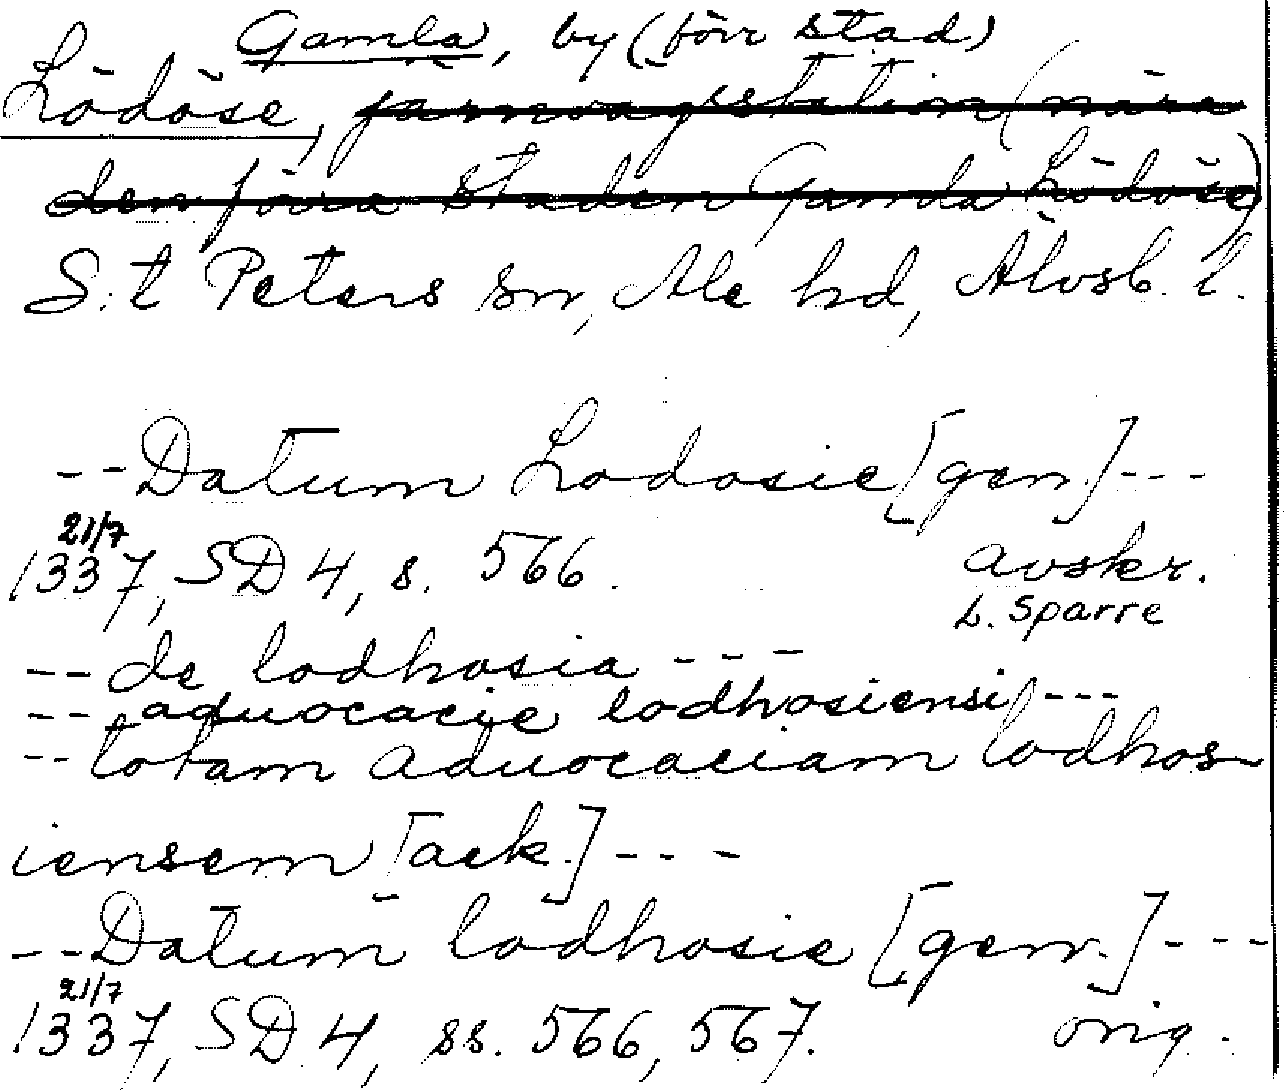 Gamla, by (förr stad)
Lödöse, järnvägsstation (nära
den förra staden Gamla Lödöse)
S:t Peters sn, Ale hd, Älvsb. l.
-- Datum Lodosie [gen.] ---
21/7
1337, SD 4, s. 566. avskr.
b. Sparre
-- de lodhosia ---
-- aduocacie lodhosiensi ---
-- totam aduocaciam lodhos-
iensem [ack.] ---
-- Datum lodhosie [gen.] ---
21/7
1337, SD 4, ss. 566, 567. orig.